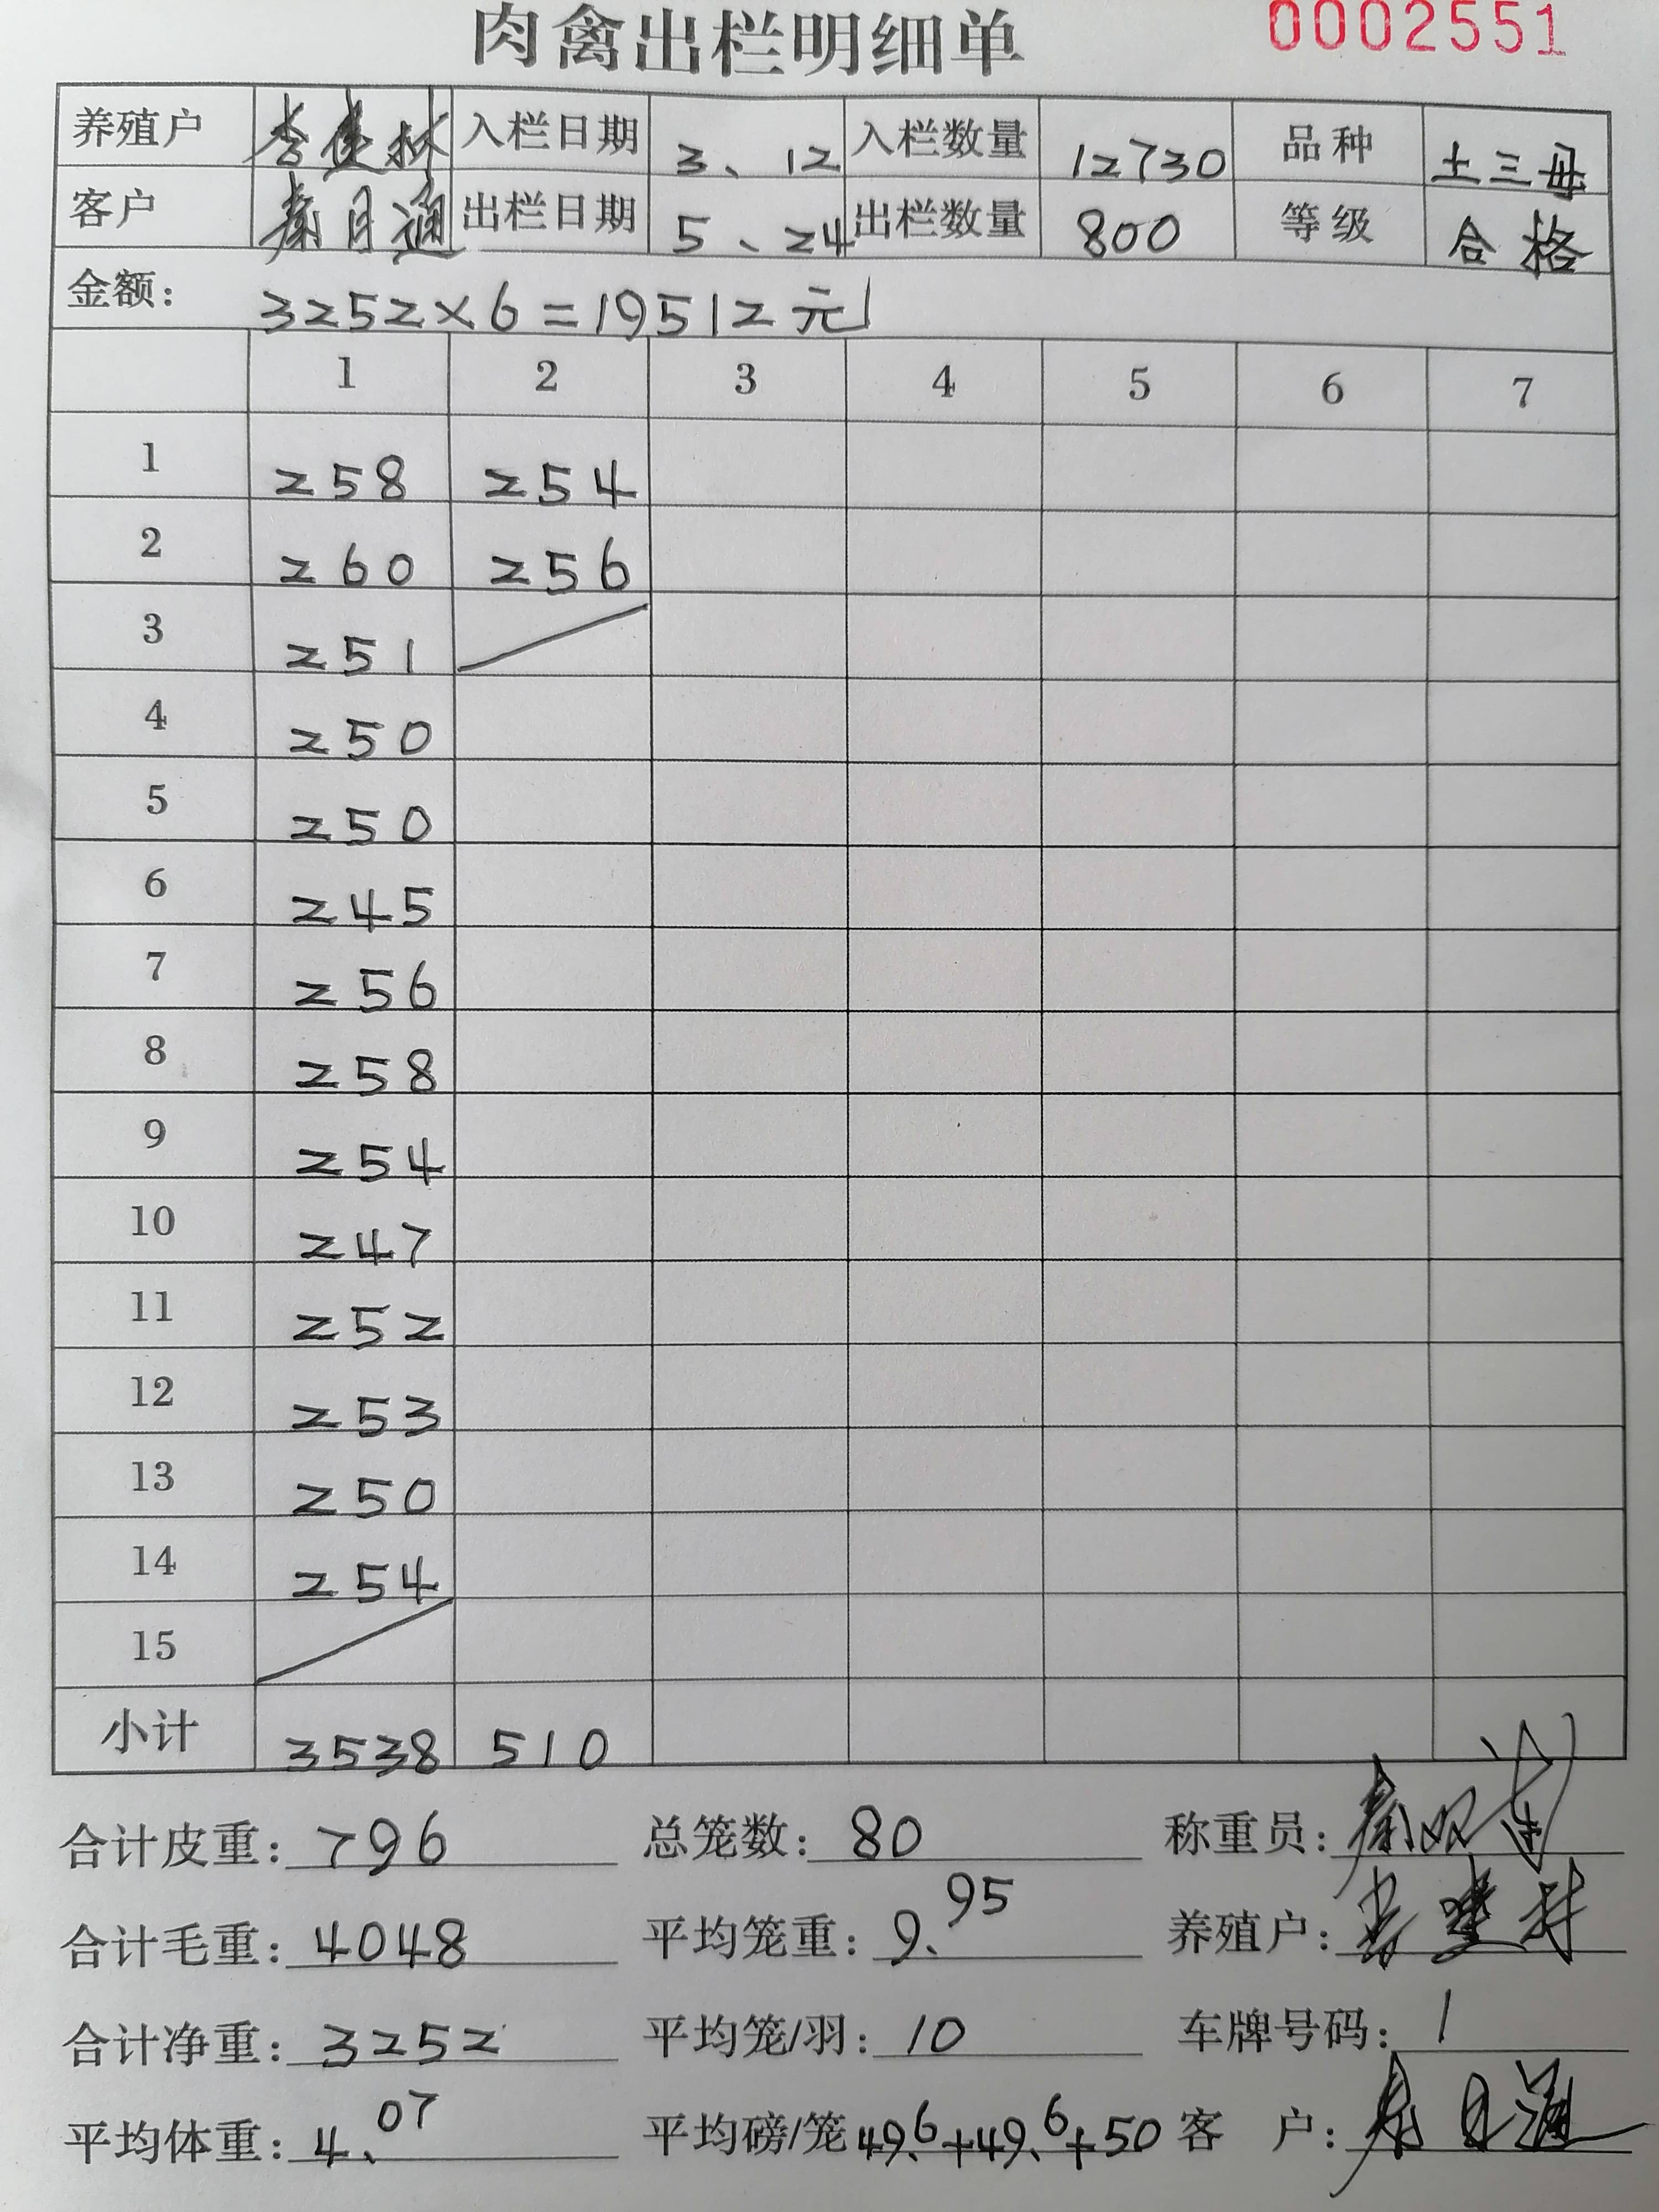 肉禽出栏明细单 0002551
养殖户 李建林 入栏日期 3、12 入栏数量 12730 品种 土三母
客户 秦月通 出栏日期 5、24 出栏数量 800 等级 合格
金额： 3252×6=19512元
1 2 3 4 5 6 7
1 258 254
2 260 256
3 251
4 250
5 250
6 245
7 256
8 258
9 254
10 247
11 252
12 253
13 250
14 254
15
小计 3538 510
合计皮重：796 总笼数：80 称重员：
合计毛重：4048 平均笼重：9.95 养殖户：
合计净重：3252 平均笼/羽：10 车牌号码：1
平均体重：4.07 平均磅/笼 49.6+49.6+50 客户：